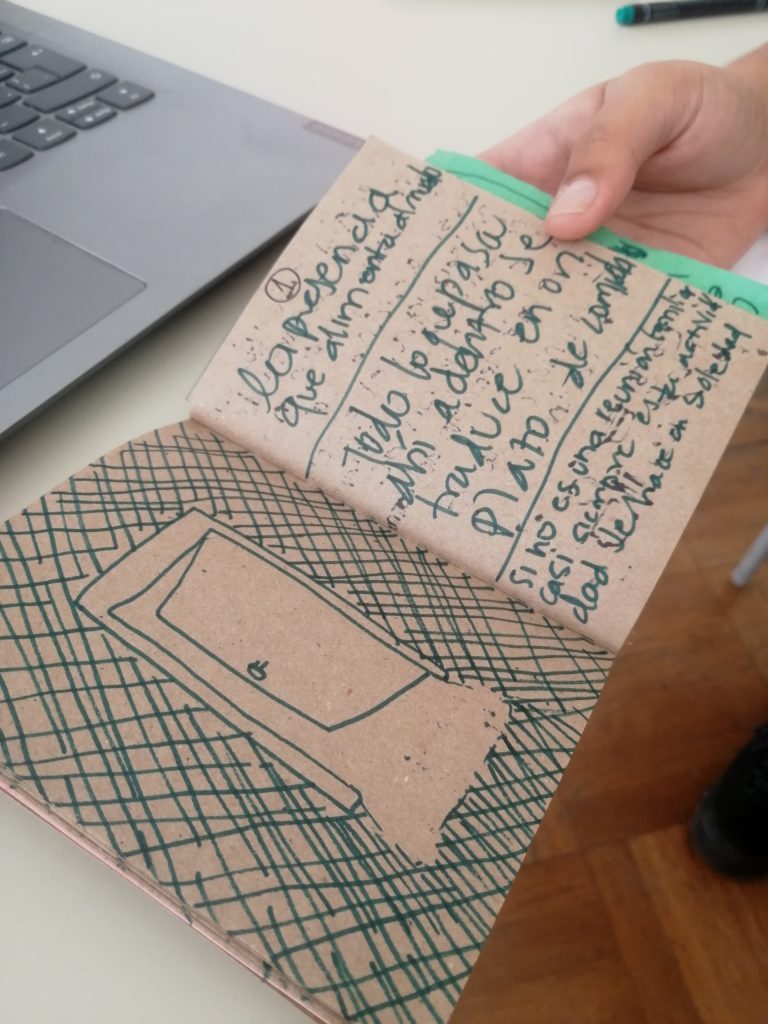 ①
la presencia
que alimenta al
Todo lo que pasa
ahí adentro se
traduce en un
plato de comida
si no es una reunión familiar
casi siempre esta activi
dad se hace en soledad